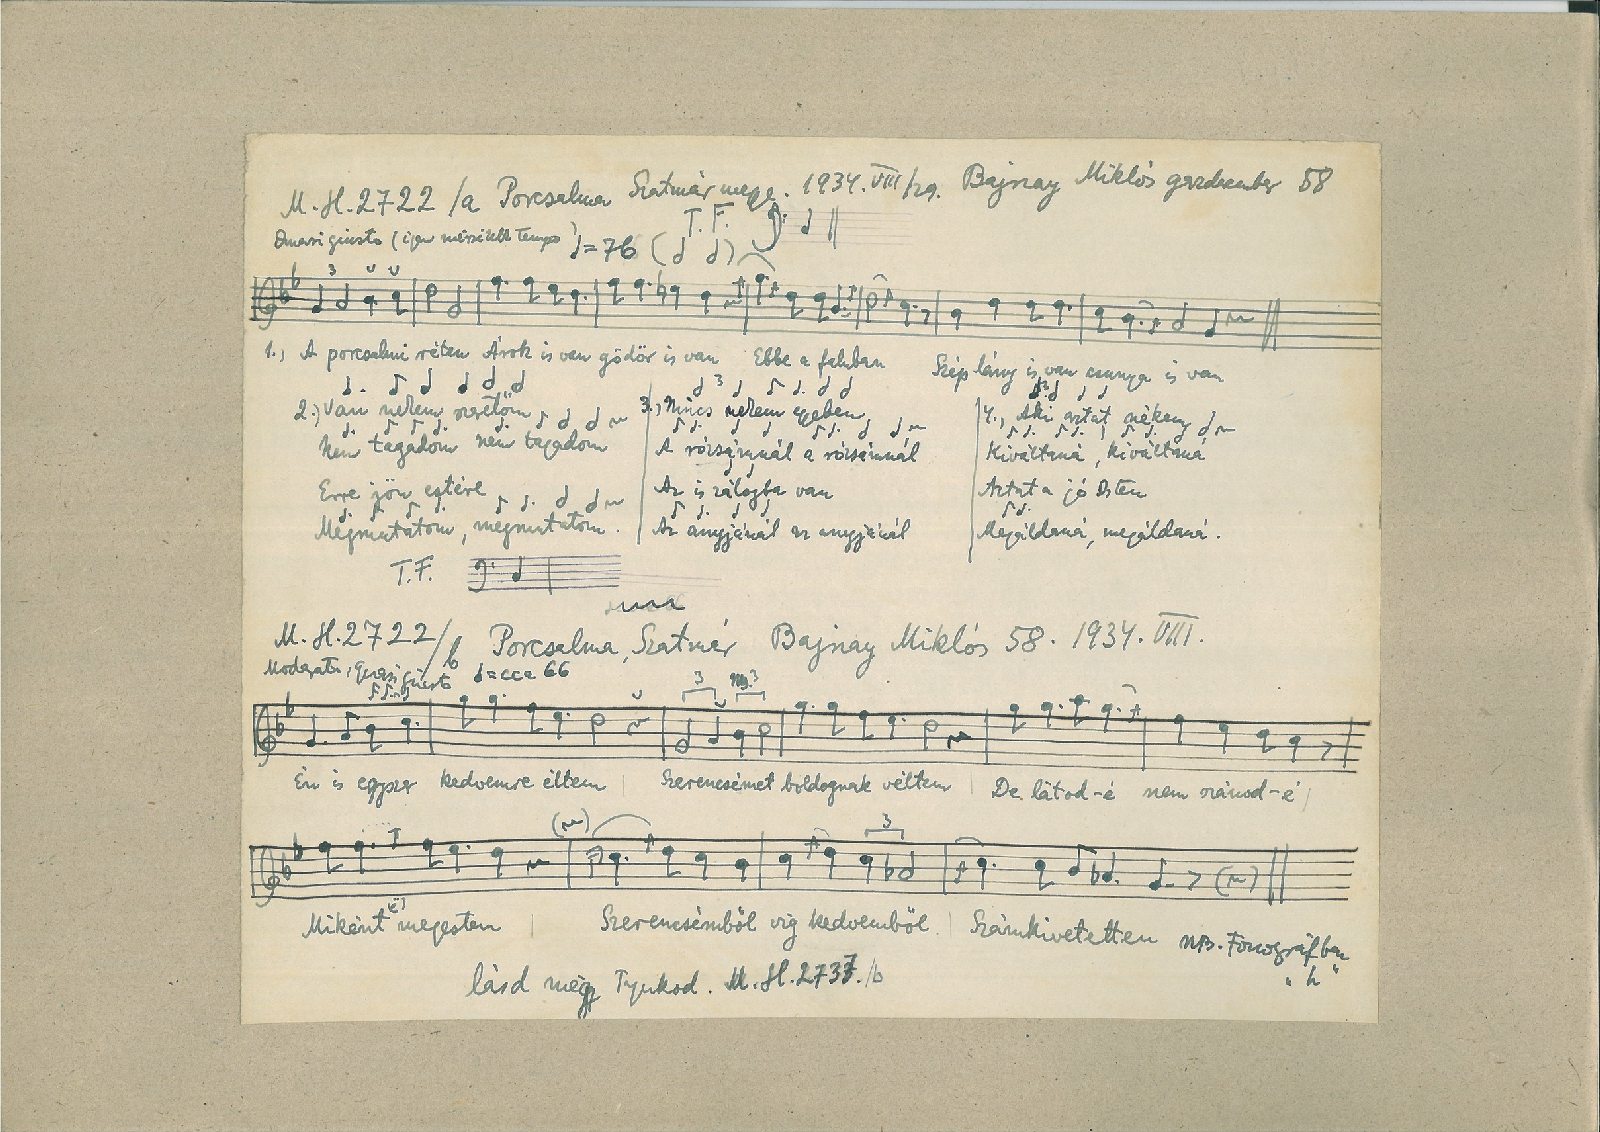 M.H.2722/a Porcsalma Szatmár mege. 1934.VIII/29. Bajnay Miklós gazdaember 58
T.F.
Quasi giusto (igen mérsékelt Tempo) =76
3
1., A porcsalmi réten Árok is van gödör is van Ebbe a faluban Szép lány is van csunya is van
2., Van nekem szeretőm
Nem tagadom nem tagadom
Erre jön estére
Megmutatom, megmutatom.
3., Nincs nekem egyebem
A rózsámnál a rózsámnál
Az is zálogba van
Az anyjánál az anyjánál
4., Aki aztat nékem
Kiváltaná, kiváltaná
Aztat a jó Isten
Megáldaná, megáldaná.
T.F.
M.H.2722/b Porcsalma, Szatmár Bajnay Miklós 58. 1934. VIII.
Moderato, quasi giusto =cca 66
3 3
Én is egyszer kedvemre éltem Szerencsémet boldognak véltem De látod-é nem szánod-é
3
Miként megestem Szerencsémből vig kedvemből Számkivetetten NB. Fonográfban
" h "
lásd még Tyukod. M.H.2737./b